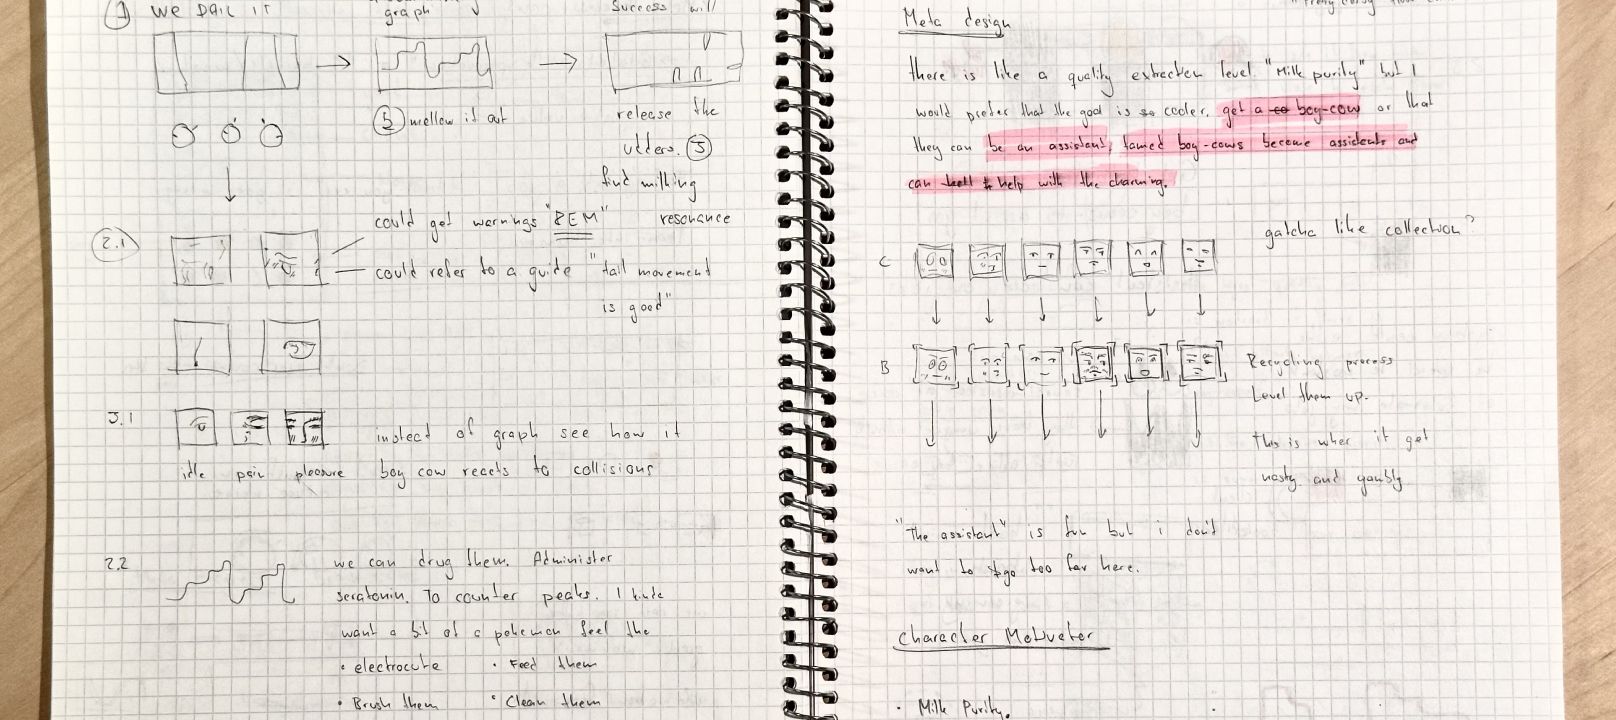 1 we pair it
graph
success will
5 mellow it out
release the
udders. 3
find milking
resonance
2.1
could get warnings "REM"
could refer to a guide "tail movement
is good"
3.1
idle pain pleasure
instead of graph see how it
boy cow reacts to collisions
2.2
we can drug them. Administer
seratonin. To counter peaks. I kinda
want a bit of a pokemon feel the
• electrocute • Feed them
• Brush them • Clean them
Meta design
there is like a quality extraction level "Milk purity" but I
would prefer that the goal is so cooler. get a co boy-cow or that
they can be an assistant, tamed boy-cows become assistants and
can hell t help with the charming.
gatcha like collection?
C
B
Recycling process
Level them up.
this is wher it get
nasty and gambly
"The assistant" is fun but i don't
want to go too far here.
Character Motivator
• Milk Purity.